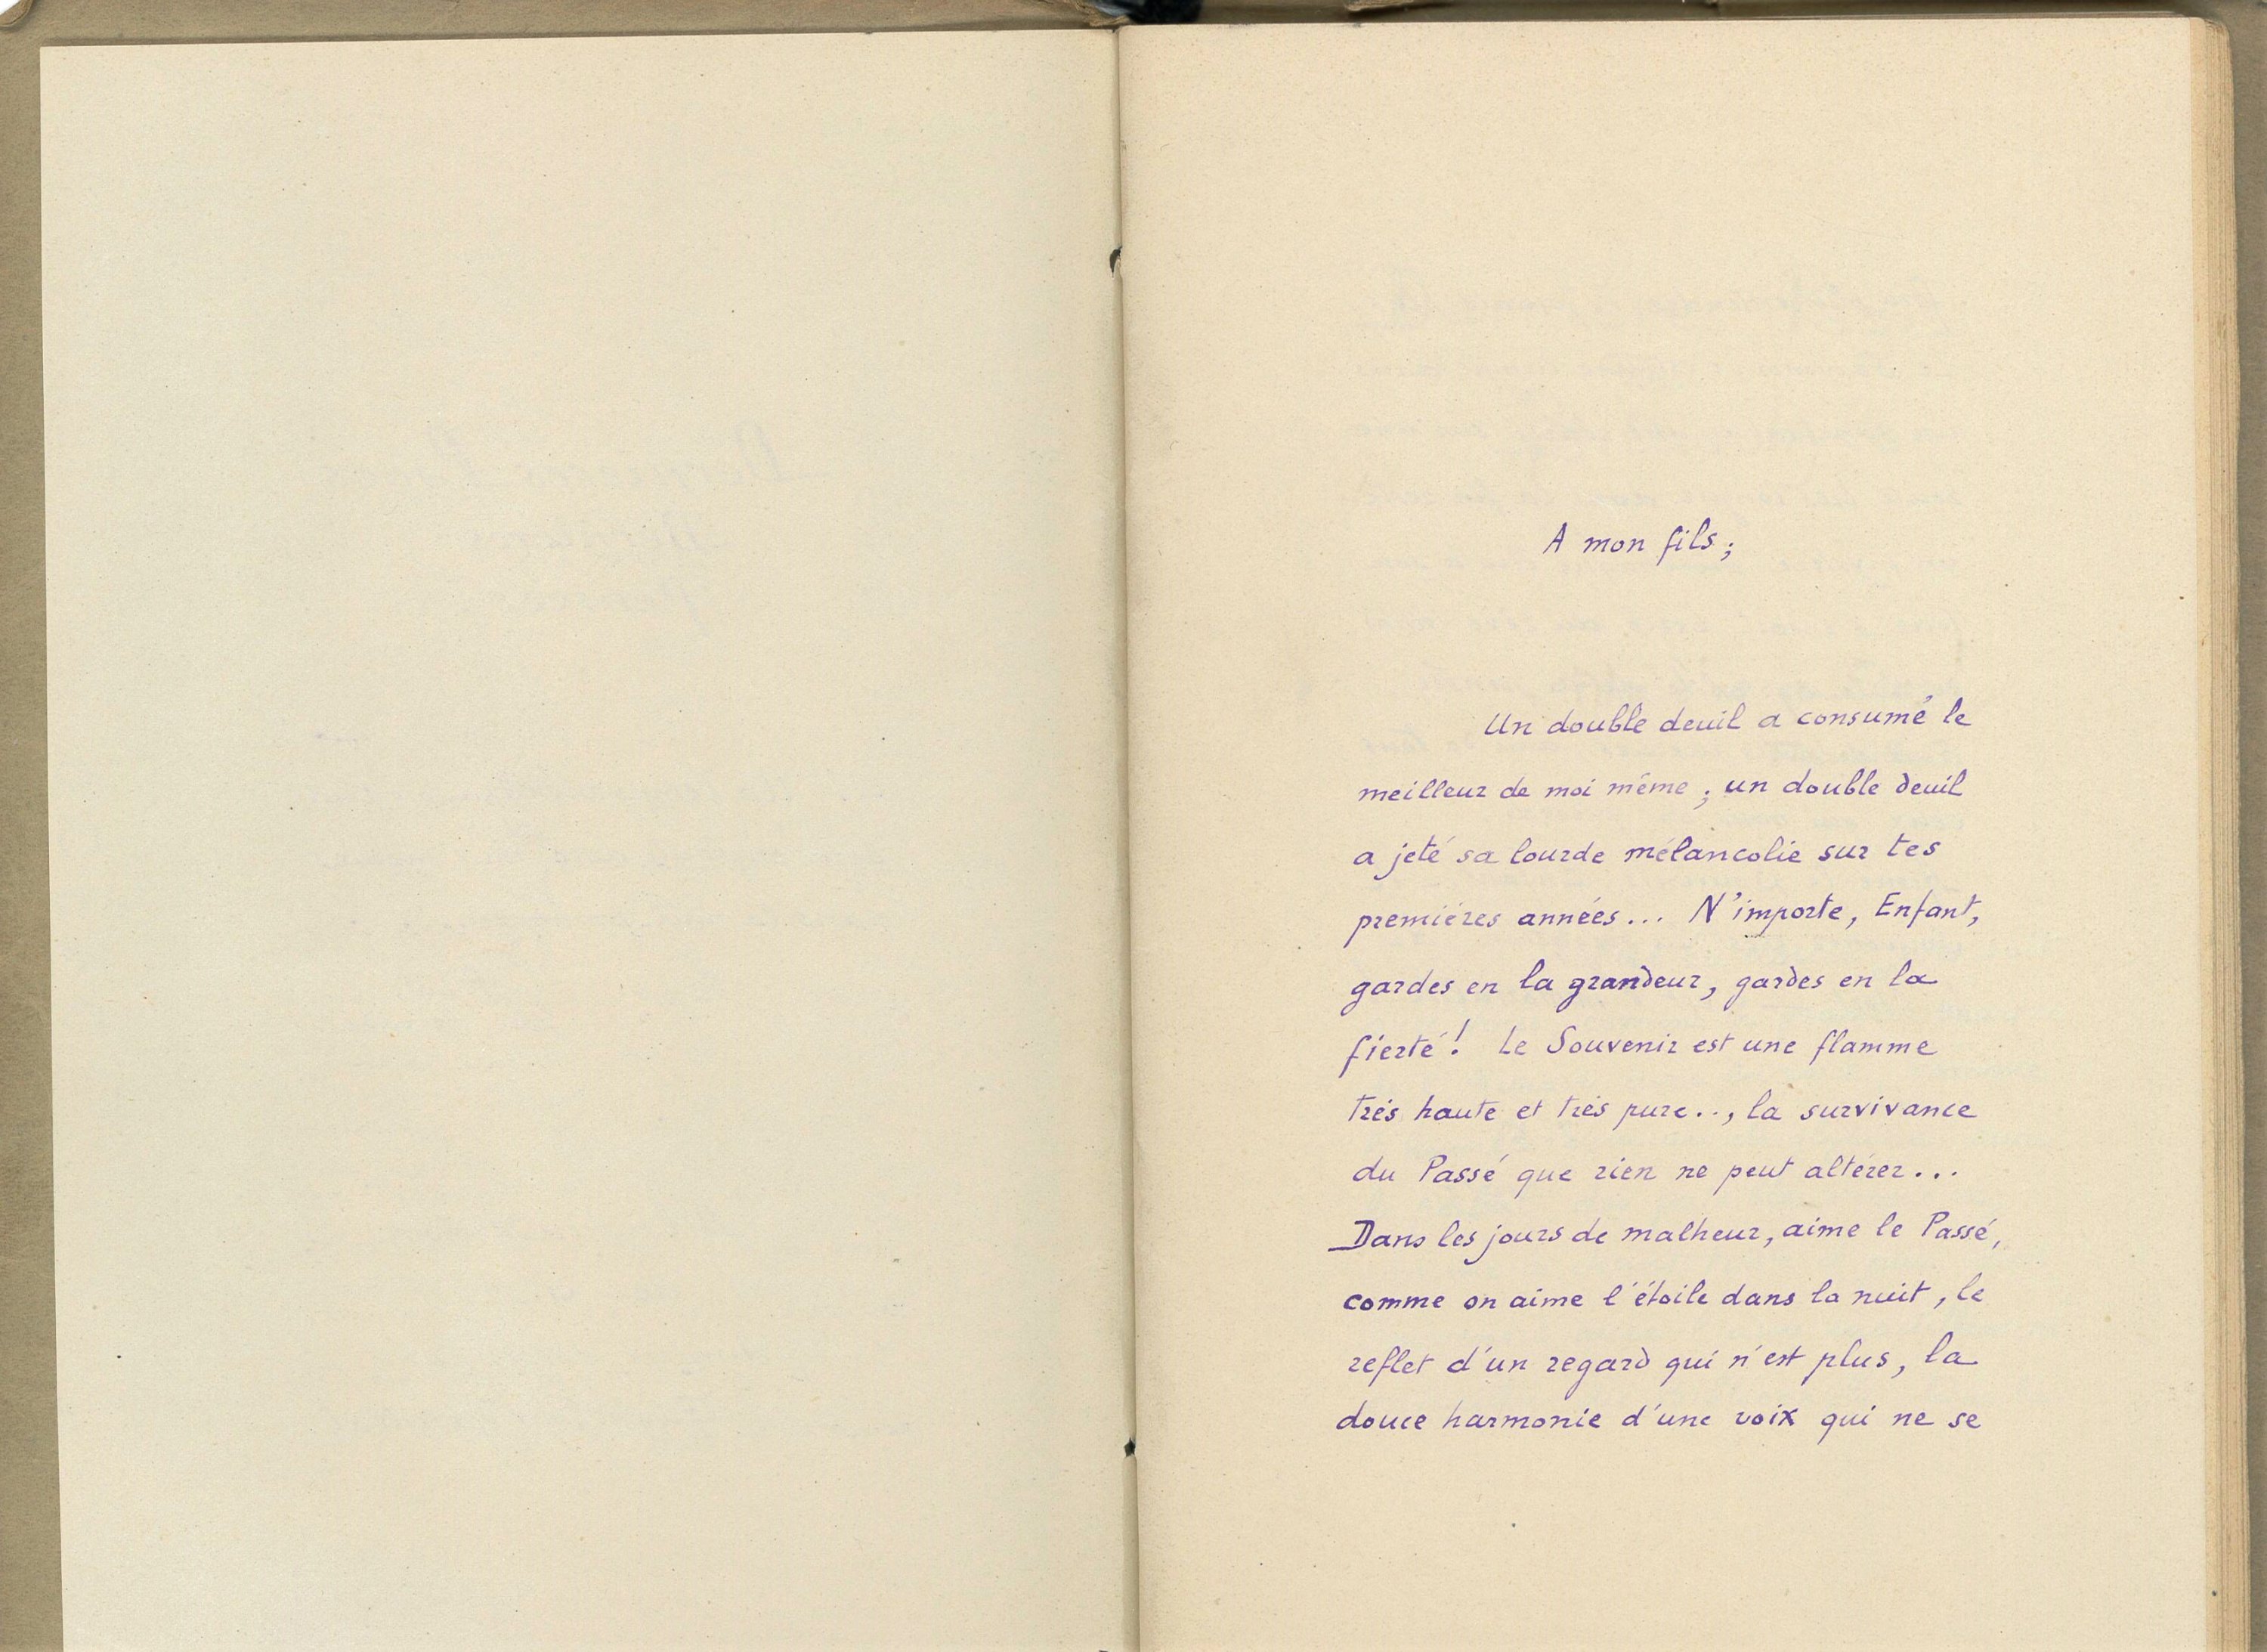 A mon fils ;
Un double deuil a consumé le
meilleur de moi même ; un double deuil
a jeté sa lourde mélancolie sur tes
premières années... N'importe, Enfant,
gardes en la grandeur, gardes en la
fierté ! Le Souvenir est une flamme
très haute et très pure.., la survivance
du Passé que rien ne peut altérer...
Dans les jours de malheur, aime le Passé,
comme on aime l'étoile dans la nuit, le
reflet d'un regard qui n'est plus, la
douce harmonie d'une voix qui ne se